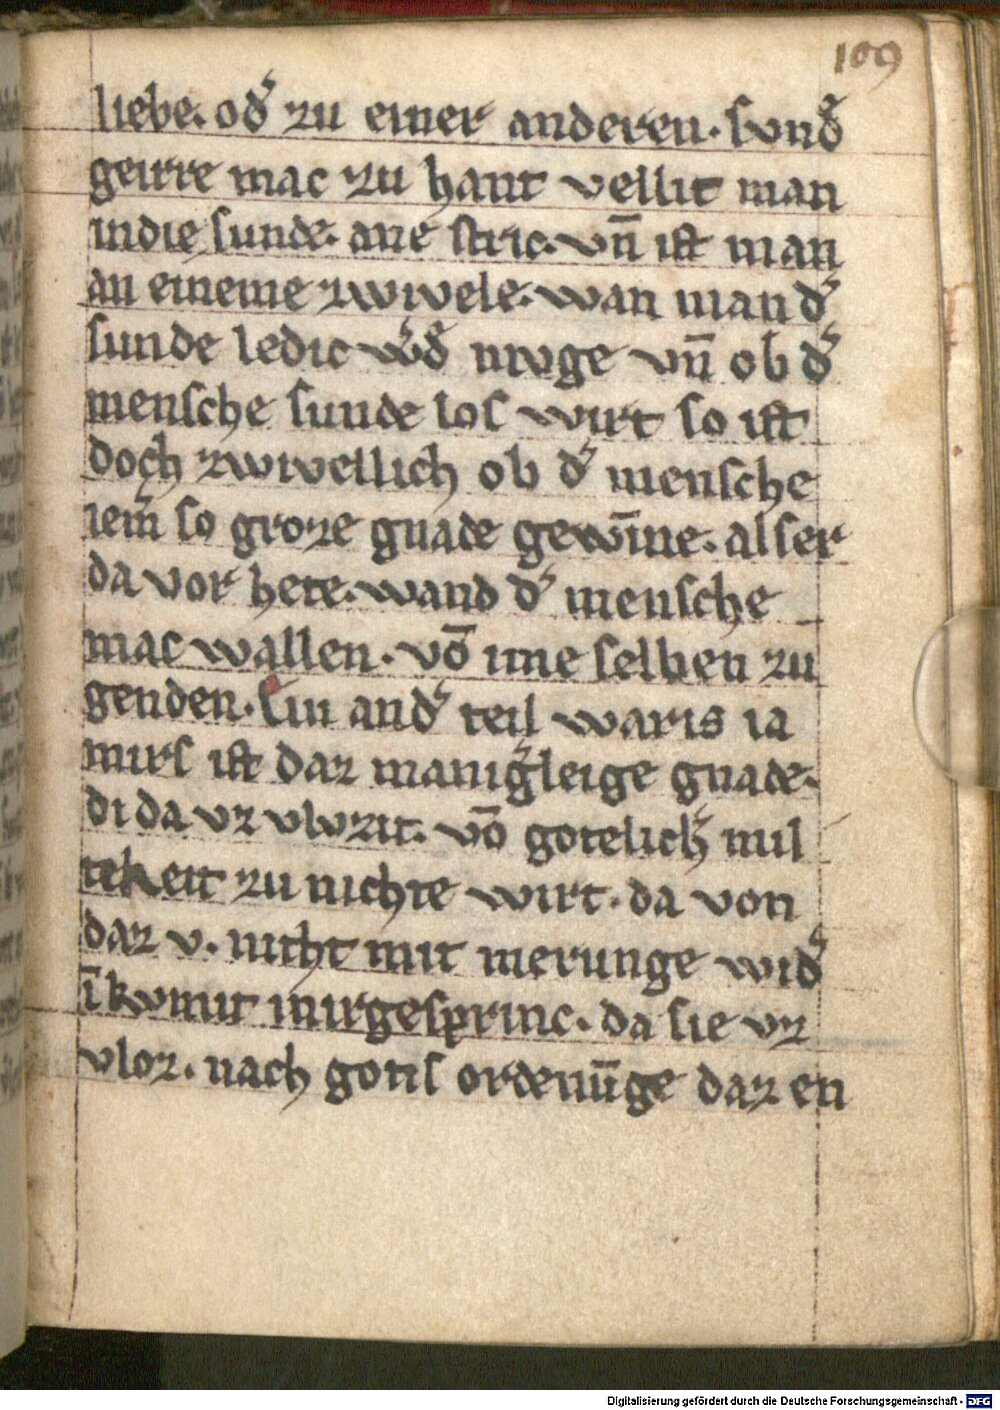 109
liebe. od᷎ zu einer anderen. sund᷎
geirre mac zu hant vellit man
indie sunde. ane stric. vn̄ ist man
an eineme zwivele. wan man d᷎
sunde ledic w᷎d᷎ muge vn̄ ob d᷎
mensche sunde los wirt so ist
doch zwivellich ob d᷎ mensche
iem̄ so groze gnade gewīne. alser
da vor hete. wand d᷎ mensche
mac wallen. vō ime selben zu
genden. Ein and᷎ teil waris ia
mirs ist daz manig᷎leige gnade.
di da vz vluzit. vō gotelich᷎ mil
tekeit zu nichte wirt. da von
daz v. nicht mit merunge wid᷎
ī kumit inirgesprinc. da sie vz
vloz. nach gotis ordenūge daz en
Digitalisierung gefördert durch die Deutsche Forschungsgemeinschaft - DFG